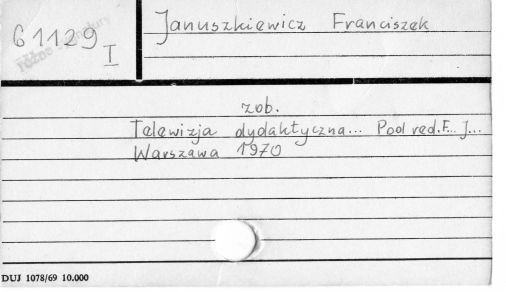 61129
I
Januszkiewicz Franciszek
zob.
Telewizja dydaktyczna... Pod red. F... J...
Warszawa 1970
DUJ 1078/69 10.000